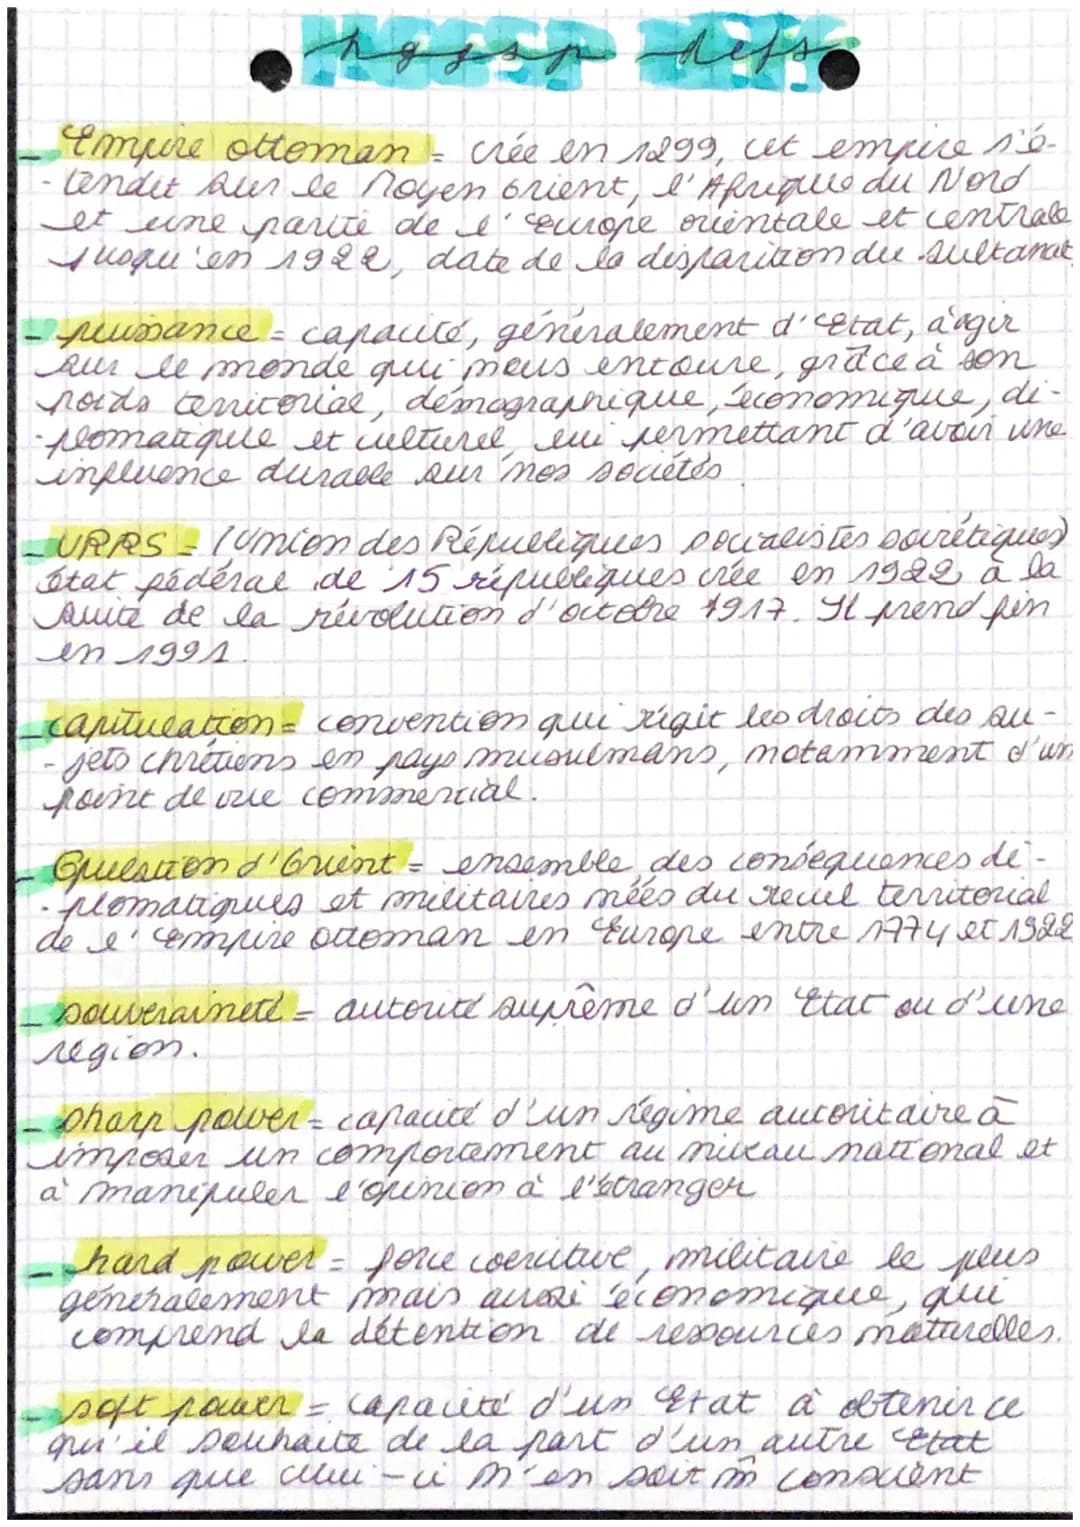 hggsp defs
- Empire ottoman = crée en 1299, cet empire s'é-
-tendit sur le Moyen Orient, l'Afrique du Nord
et une partie de l'Europe orientale et centrale
jusqu'en 1922, date de la disparition du sultanat.
- puissance = capacité, généralement d'Etat, à agir
sur le monde qui nous entoure, grâce à son
poids territorial, démographique, économique, di-
-plomatique et culturel, lui permettant d'avoir une
influence durable sur nos sociétés.
- URRS = (Union des Républiques socialistes soviétiques)
état fédéral de 15 républiques crée en 1922 à la
suite de la révolution d'octobre 1917. Il prend fin
en 1991.
- capitulation = convention qui régit les droits des su-
-jets chrétiens en pays musulmans, notamment d'un
point de vue commercial.
- Question d'Orient = ensemble des conséquences di-
-plomatiques et militaires nées du recul territorial
de l'Empire ottoman en Europe entre 1774 et 1922
- souveraineté = autorité suprême d'un Etat ou d'une
région.
- sharp power = capacité d'un régime autoritaire à
imposer un comportement au niveau national et
à manipuler l'opinion à l'étranger
- hard power = force coercitive, militaire le plus
généralement mais aussi économique, qui
comprend la détention de ressources naturelles.
- soft power = capacité d'un Etat à obtenir ce
qu'il souhaite de la part d'un autre Etat
sans que celui-ci n'en soit m̂ conscient